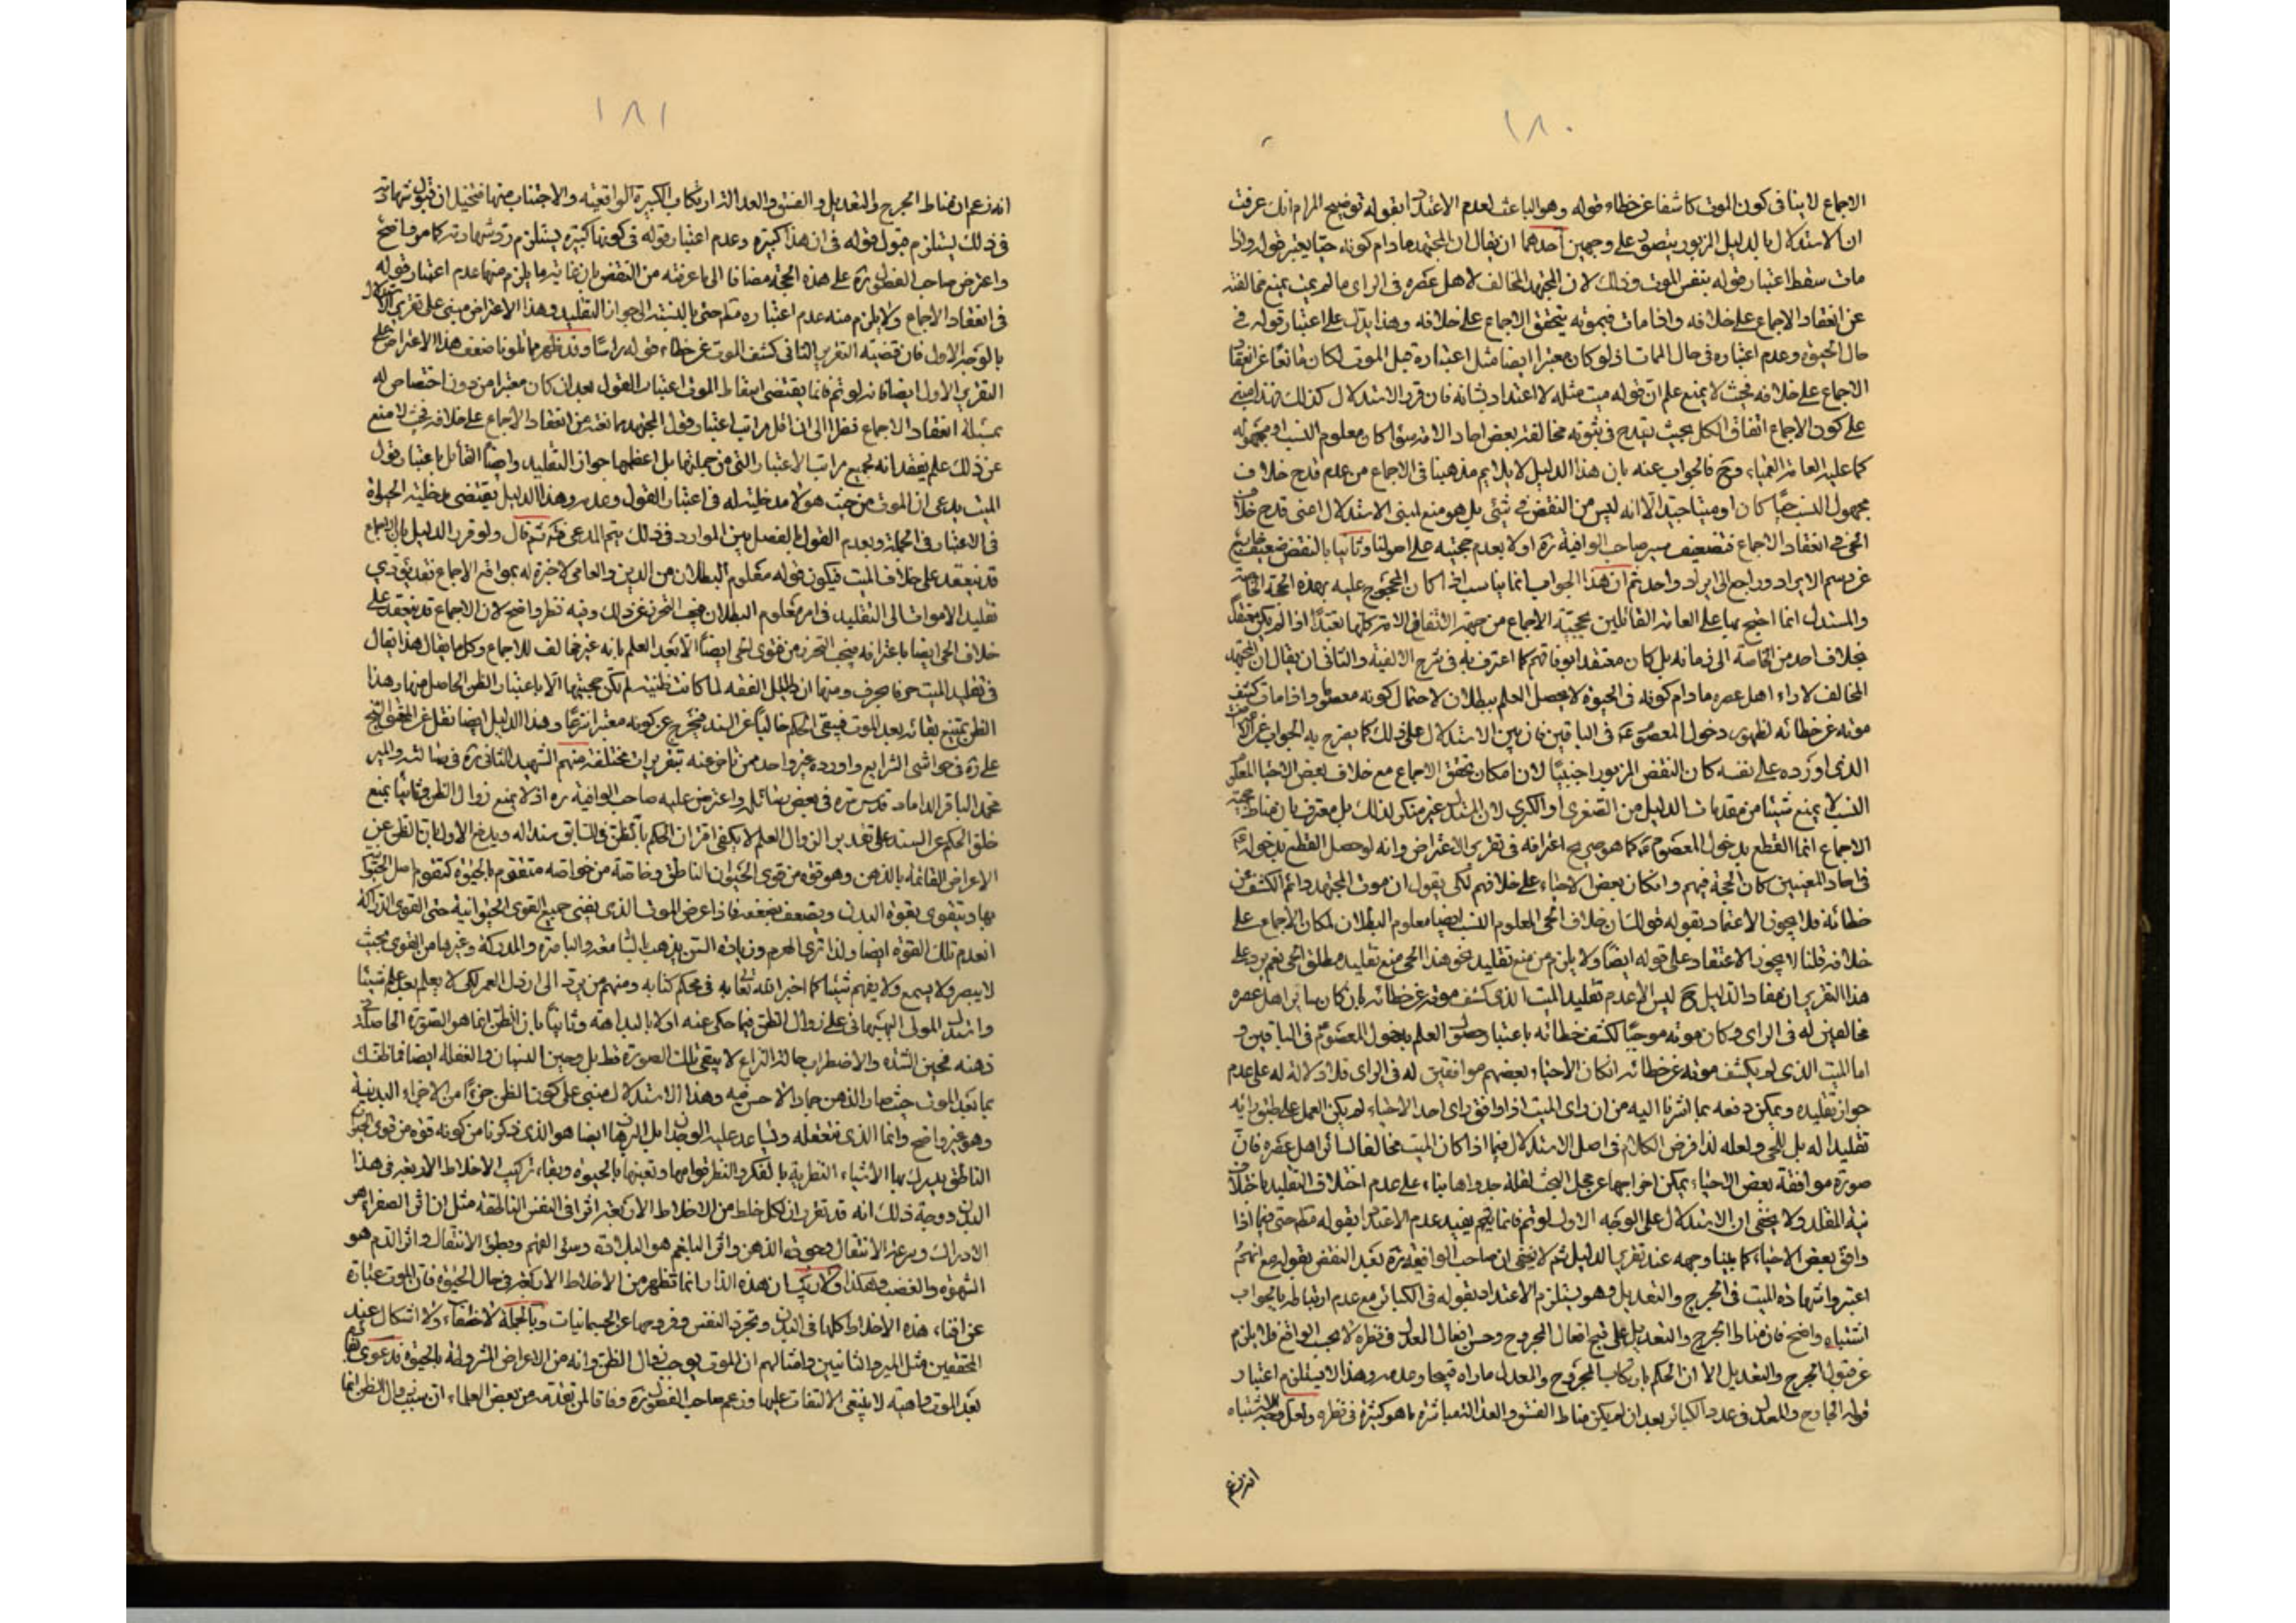 ١٨٠
الاجماع لا ينافى كون الموت كاشفا عن خطاء قوله وهو الباعث لعدم الاعتداد بقوله توضيح المرام انك عرفت
ان الاستدلال بالدليل المزبور يتصور على وجهين احدهما ان يقال ان المجتهد مادام كونه حيا يعتبر قوله واذا
مات سقط اعتبار قوله بنفس الموت وذلك لان المجتهد المخالف لاهل عصره فى الراى ما لم يمت يمنع مخالفته
عن انعقاد الاجماع على خلافه واذا مات فبموته يتحقق الاجماع على خلافه وهذا يدل على اعتبار قوله فى
حال الحيوة وعدم اعتباره فى حال الممات اذ لو كان معتبرا ايضا مثل اعتباره قبل الموت لكان مانعا عن انعقاد
الاجماع على خلافه فحيث لا يمنع علم ان قوله ميت مثله لا اعتداد بشانه فان قرر الاستدلال كذلك فهذا مبنى
على كون الاجماع اتفاق الكل بحيث يقدح فى ثبوته مخالفة بعض احاد الامة سواء كان معلوم النسب او مجهوله
كما عليه العامة العمياء وح فالجواب عنه بان هذا الدليل لا يلايم مذهبنا فى الاجماع من عدم قدح خلاف
مجهول النسب حيا كان او ميتا جيد الا انه ليس من النقض فى شئ بل هو منع لمبنى الاستدلال اعنى قدح خلاف
الحى فى انعقاد الاجماع فتضعيف صاحب الوافية ره اولا بعدم حجيته على اصولنا وثانيا بالنقض ضعيف خارج
عن رسم الايراد وراجع الى ايراد واحد ثم ان هذا الجواب انما يناسب اذا كان المحجوج عليه بهذه الحجة الخاصة
والمستدل انما احتج بها على العامة القائلين بحجية الاجماع من جهة اتفاق الامة كلها تعبدا اذا لم يكن معتقدا
بخلاف احد من الخاصة الى زمانه بل كان معتقدا بوفاقهم كما اعترف به فى شرح الالفية والثانى ان يقال ان المجتهد
المخالف لاراء اهل عصره مادام كونه فى الحيوة لا يحصل العلم ببطلان لاحتمال كونه معصوما واذا مات كشف
موته عن خطائه لظهور دخول المعصوم ع فى الباقين فان بين الاستدلال على ذلك كما يصرح به الجواب عن الاعتراض
الذى اورده على نفسه كان النقض المزبور اجنبيا لان امكان تحقق الاجماع مع خلاف بعض الاحياء المعلوم
النسب لا يمنع شيئا من مقدمات الدليل من الصغرى او الكبرى لان المستدل غير منكر لذلك بل معترف بان مناط حجية
الاجماع انما القطع بدخول المعصوم ع كما هو صريح اعترافه فى تقرير الاعتراض وانه لو حصل القطع بدخوله ع
فى احاد المعينين كان الحجة فيهم وان كان بعض الاحياء على خلافهم لكن يقول ان موت المجتهد دائم الكشف عن
خطائه فلا يجوز الاعتماد بقوله فو ان خلاف الحى المعلوم النسب ايضا معلوم البطلان لمكان الاجماع على
خلافه قلنا لا يجوز الاعتقاد على قوله ايضا ولا يلزم من منع تقليد نحو هذا الحى منع تقليد مطلق الحى نعم يرد على
هذا التقرير ان مفاد الدليل ح ليس الا عدم تقليد الميت الذى كشف موته عن خطائه بان كان سائر اهل عصره
مخالفين له فى الراى وكان موته موجبا لكشف خطائه باعتبار حصول العلم بدخول المعصوم ع فى الباقين و
اما الميت الذى لم يكشف موته عن خطائه ان كان الاحياء بعضهم موافقين له فى الراى فلا دلالة له على عدم
جواز تقليده ويمكن دفعه بما اشرنا اليه من ان راى الميت اذا وافق راى احد الاحياء لم يكن العمل على طبق رايه
تقليدا له بل للحى ولعله لذا فرض الكلام فى اصل الاستدلال فيما اذا كان الميت مخالفا لسائر اهل عصره فان
صورة موافقة بعض الاحياء يمكن اخراجها عن محل البحث لقلة جدواها بناء على عدم اختلاف التقليد باختلاف
نية المقلد ولا يخفى ان الاستدلال على الوجه الاول لو تم فانما يتم بفيد عدم الاعتداد بقوله مطم حتى فيما اذا
وافق بعض الاحياء كما بينا وجهه عند تقرير الدليل ثم لا يخفى ان صاحب الوافية ره بعد النقض بقوله مع انهم
اعتبروا شهادة الميت فى الجرح والتعديل وهو يستلزم الاعتداد بقوله فى الكبائر مع عدم ارتباطه بالجواب
اشتباه واضح فان مناط الجرح والتعديل على قبح افعال المجروح وحسن افعال المعدل فى نظره لا بحسب الواقع فلا يلزم
عن قبول الجرح والتعديل الا ان الحكم بارتكاب المجروح والمعدل ما راه قبيحا وعدمه وهذا لا يستلزم اعتبار
قول الجارح والمعدل فى عدد الكبائر بعد ان لم يكن مناط الفسق والعدالة مباشرة ما هو كبيرة فى نظره ولعل وجه الاشتباه
انه زعم
١٨١
انه زعم ان مناط الجرح والتعديل والفسق والعدالة ارتكاب الكبيرة الواقعية والاجتناب منها فتخيل ان قبول شهادته
فى ذلك يستلزم قبول قوله فى ان هذا كبيرة وعدم اعتبار قوله فى كونها كبيرة يستلزم رد شهادته كما مر واضح
واعترض صاحب الفصول ره على هذه الحجة مضافا الى ما عرفته من النقض بان غاية ما يلزم منها عدم اعتبار قوله
فى انعقاد الاجماع ولا يلزم منه عدم اعتباره مطم حتى بالنسبة الى جواز التقليد وهذا الاعتراض مبنى على تقرير الاستدلال
بالوجه الاول فان قضية التقرير الثانى كشف الموت عن خطاء قوله راسا وقد ظهر مما تلونا ضعف هذا الاعتراض على
التقرير الاول ايضا فانه لو تم فانما يقتضى اسقاط الموت اعتبار القول بعد ان كان معتبرا من دون اختصاص له
بمسئلة انعقاد الاجماع فنظرا الى ان اقل مراتب اعتبار قول المجتهد ممانعته من انعقاد الاجماع على خلافه فحيث لا منع
عن ذلك علم بفقدانه لجميع مراتب الاعتبار التى من جملتها بل اعظمها جواز التقليد وايضا القائل باعتبار قول
الميت يدعى ان الموت من حيث هو لا مدخلية له فى اعتبار القول وعدمه وهذا الدليل يقتضى مدخلية الحيوة
فى الاعتبار فى الجملة وبعدم القول بالفصل بين الموارد فى ذلك يتم المدعى ثم قال ولو قرر الدليل بان الاجماع
قد ينعقد على خلاف الميت فيكون قوله معلوم البطلان من الدين والعامى لا خبرة له بمواقع الاجماع فقد يؤدى
تقليد الاموات الى التقليد فى امر معلوم البطلان فيجب التحرز عن ذلك وفيه نظر واضح لان الاجماع قد ينعقد على
خلاف الحى ايضا باعترافه فيجب التحرز من فتوى الحى ايضا الا بعد العلم بانه غير مخالف للاجماع وكل ما يقال هذا يقال
فى تقليد الميت حرفا بحرف ومنها ان دلائل الفقه لما كانت ظنية لم تكن حجيتها الا باعتبار الظن الحاصل منها وهذا
الظن يمتنع بقائه بعد الموت فيبقى الحكم خاليا عن السند فيخرج عن كونه معتبرا شرعا وهذا الدليل ايضا نقل عن المحقق الشيخ
على ره فى حواشى الشرايع واورده غير واحد ممن تاخر عنه بتقريرات مختلفة منهم الشهيد الثانى ره فى رسالته والمير
محمد الباقر الداماد قدس سره فى بعض رسائله واعترض عليه صاحب الوافية ره اولا بمنع زوال الظن وثانيا بمنع
خلو الحكم عن السند على تقدير الزوال لعله يكفى اقتران الحكم بالظن فى السابق سندا له ويدفع الاول بان الظن عن
الاعراض القائمة بالذهن وهو قوة من قوى الحيوان الناطق وخاصة من خواصه متقوم بالحيوة كتقوم اصل الحيوان
بها ويتقوى بقوة البدن ويضعف بضعفه فاذا عرض الموت الذى يفنى جميع القوى الحيوانية حتى القوى الدراكة
انعدم تلك القوة ايضا ولذا ترى الهرم وزيادة السن يذهب بالسامعة والباصرة والمدركة وغيرها من القوى بحيث
لا يبصر ولا يسمع ولا يفهم شيئا كما اخبر الله تعالى به فى محكم كتابه ومنهم من يرد الى ارذل العمر لكى لا يعلم بعد علم شيئا
واستدل المولى البهبهانى على زوال الظن فيما حكى عنه اولا بالبداهة وثانيا بان الظن انما هو الصورة الحاصلة فى
ذهنه فحين الشدة والاضطراب حالة النزاع لا يبقى تلك الصورة قط بل وحين النسيان والغفلة ايضا فما ظنك
بما بعد الموت حيث صار الذهن جمادا لا حس فيه وهذا الاستدلال مبنى على كون الظن جزءا من الاجزاء البدنية
وهو غير واضح وانما الذى نتعقله ويساعد عليه الوجدان بل البرهان ايضا هو الذى ذكرنا من كونه قوة من قوى الحيوان
الناطق يدرك بها الاشياء النظرية بالفكر والنظر قوامها وتعينها بالحيوة وبقاء تركيب الاخلاط الاربعة فى هذا
البدن ووجه ذلك انه قد تقرر ان لكل خلط من الاخلاط الاربعة اثرا فى النفس الناطقة مثل ان اثر الصفراء هو
الادراك وسرعة الانتقال وجودة الذهن واثر البلغم هو البلادة وسئى الفهم وبطؤ الانتقال واثر الدم هو
الشهوة والغضب وهكذا ولا ريب ان هذه الاثار انما تظهر من الاخلاط الاربعة فى حال الحيوة فان الموت عبارة
عن افناء هذه الاخلاط كلها فى البدن وتجرد النفس وخروجها عن الجسمانيات وبالجملة لا خفاء ولا اشكال عند
المحققين مثل المير والثانيين وامثالهم ان الموت يوجب زوال الظن وانه من الاعراض المشروطة بالحيوة فدعوى بقائه
بعد الموت واهية لا ينبغى الالتفات عليها وزعم صاحب الفصول ره وفاقا لمن تقدمه من بعض العلماء ان سبب زوال الظن انما